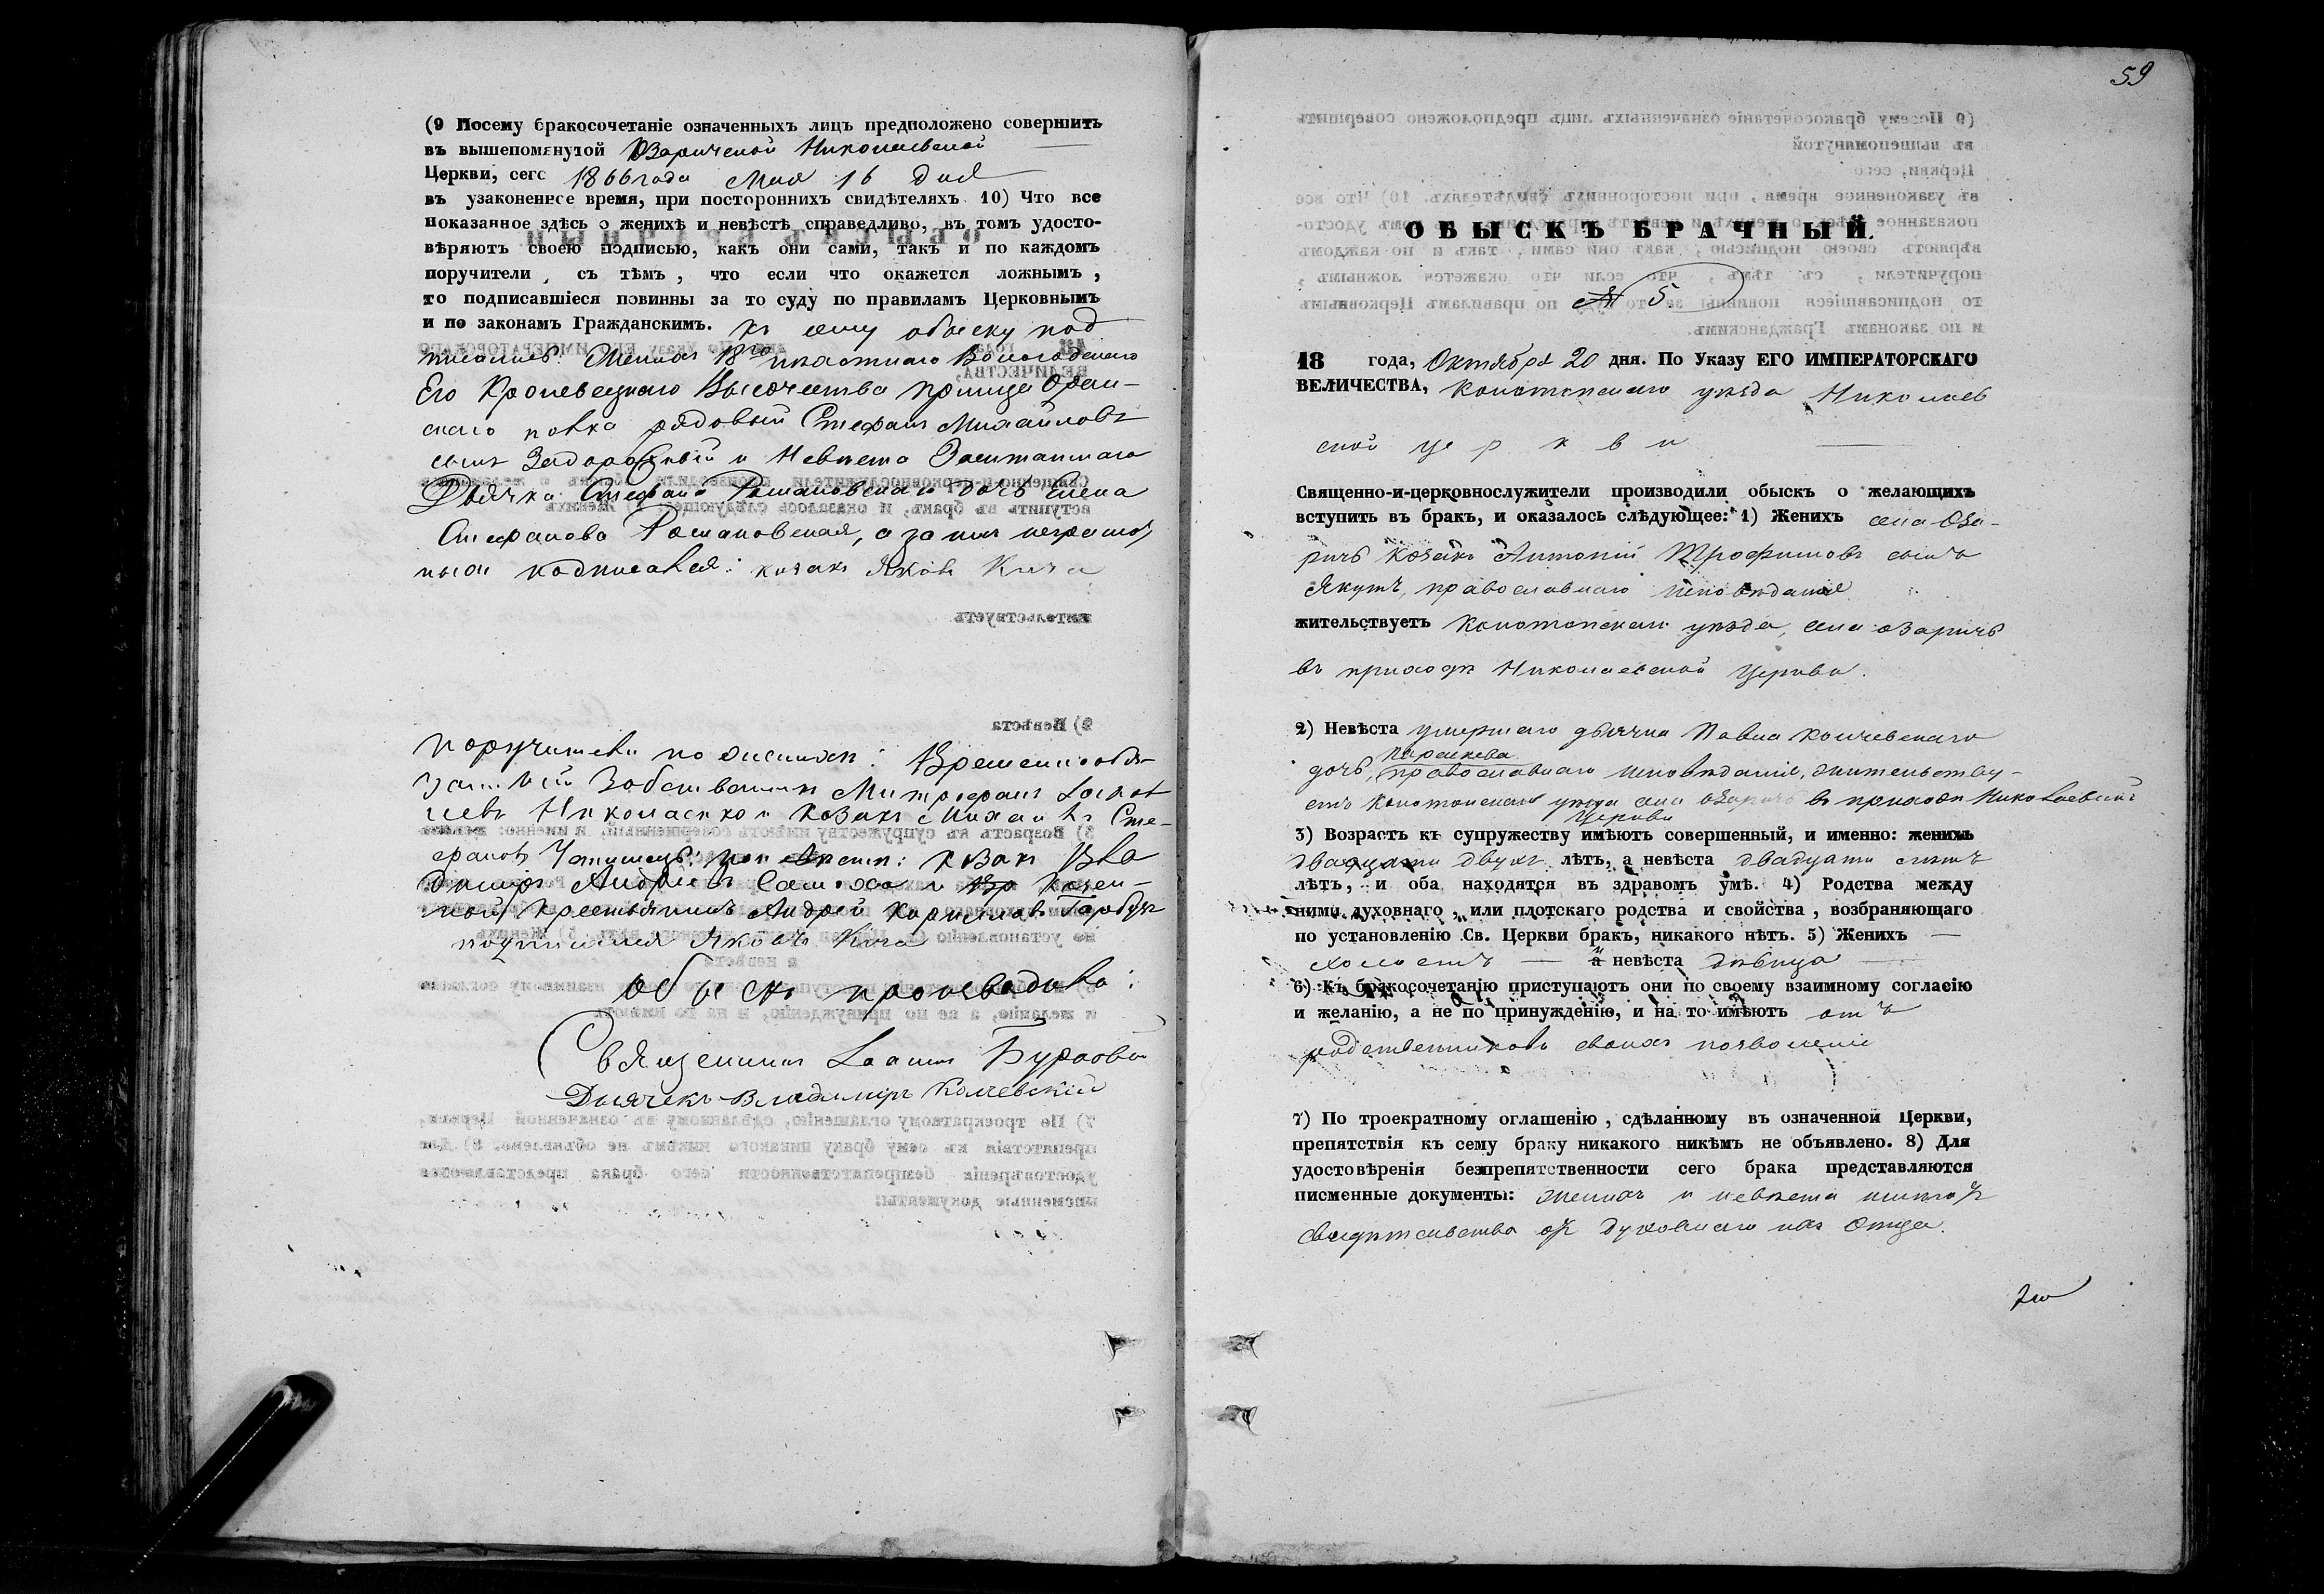 (9 Посему бракосочетаніе означенныхъ лицъ предположено совершить
въ вышепомянутой Озаричской Николаевской
Церкви, сего 1866 года Мая 16 дня
въ узаконенное время, при постороннихъ свидѣтеляхъ. 10) Что все
показанное здѣсь о женихѣ и невѣстѣ справедливо, въ томъ удосто-
вѣряютъ своею подписью, какъ они сами, такъ и по каждомъ
поручители, съ тѣмъ, что если что окажется ложнымъ,
то подписавшіеся повинны за то суду по правиламъ Церковнымъ
и по законамъ Гражданскимъ. Къ сему обыску под
писались: Женихъ 18го пѣхотнаго Вологодскаго
Его Королевецкаго Высочества принца Оран-
скаго полка рядовый Стефанъ Михайловъ
сынъ Задорожный и Невѣста Заштатнаго
Дьячка Стефана Романовскаго дочь Елена
Стефанова Романовская, а за них неграмот
ных подписался: козакъ Яковъ Кича
поручители по женихѣ: Временнообя-
занный Митрофанъ
Николаенко и Козакъ Михаилъ Сте-
фановъ по невѣсте: козакъ Вла
димиръ Андріевъ и казен-
ный крестьянинъ Андрей Корниловъ
подписался Яковъ Кича
Обыскъ производили:
Священникъ Іоаннъ
Дьячекъ Владимиръ Колчевскій
59
ОБЫСКЪ БРАЧНЫЙ.
№ 5
18 года, Октября 20 дня. По Указу ЕГО ИМПЕРАТОРСКАГО
ВЕЛИЧЕСТВА, Конотопскаго уѣзда Николаев
ской церкви
Священно-и-церковнослужители производили обыскъ о желающихъ
вступить въ бракъ, и оказалось слѣдующее: 1) Женихъ села Оза-
ричъ козакъ Антоній Трофимовъ сынъ
Якутъ, православнаго исповѣданія
жительствуетъ Конотопскаго уѣзда, села Озаричъ
въ приходѣ Николаевской Церкви.
2) Невѣста умершаго дьячка Павла Колчевскаго
Параскева
дочь, православнаго исповѣданія, жительству-
етъ Конотопскаго уѣзда села Озаричъ въ приходѣ Николаевской
Церкви
3) Возрастъ къ супружеству имѣютъ совершенный, и именно: женихъ
двадцати двухъ лѣтъ, а невѣста двадцати
лѣтъ, и оба находятся въ здравомъ умѣ. 4) Родства между
ними духовнаго, или плотскаго родства и свойства, возбраняющаго
по установленію Св. Церкви бракъ, никакого нѣтъ. 5) Женихъ
холостъ — а невѣста дѣвица
6) Къ бракосочетанію приступаютъ они по своему взаимному согласію
и желанію, а не по принужденію, и на то имѣютъ отъ
родственниковъ своихъ позволеніе
7) По троекратному оглашенію, сдѣланному въ означенной Церкви,
препятствія къ сему браку никакого никѣмъ не объявлено. 8) Для
удостовѣренія безпрепятственности сего брака представляются
писменные документы: женихъ и невѣста имѣютъ
свидѣтельства отъ духовнаго ихъ Отца.